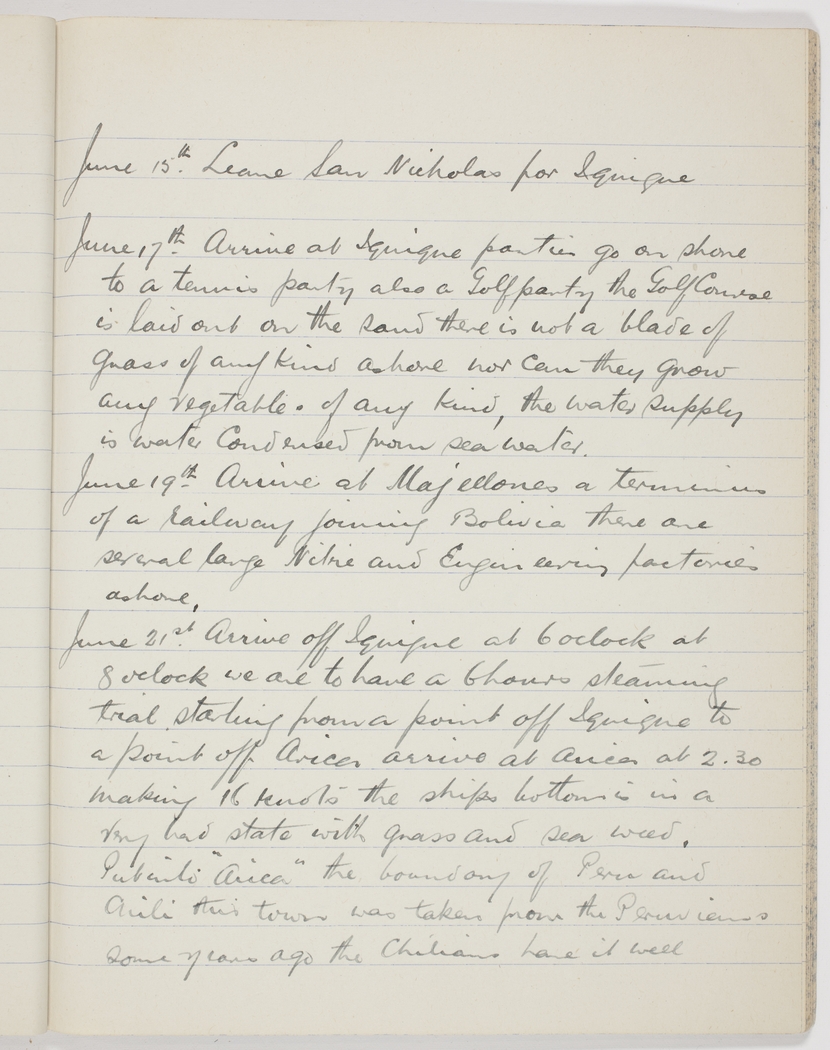 June 15th. Leave San Nicholas for Iquique
June, 17th. Arrive at Iquique parties go on shore
to a tennis party also a Golf party the Golf Course
is laid out on the sand there is not a blade of
grass of any kind ashore nor can they grow
any vegetables of any kind, the water supply
is water Condensed from sea water.
June 19th. Arrive at Majellones a terminus
of a railway joining Bolivia there are
several large Nitrie and Engineering factories
ashore,
June 21st. Arrive off Iquique at 6 oclock at
8 oclock we are to have a 6 hours steaming
trial starting from a point off Iquique to
a point off Arica arrive at Arica at 2.30
making 16 knots the ships bottom is in a
very bad state with grass and sea weed.
Put into "Arica" the boundary of Peru and
Chili this town was taken from the Peruvians
some years ago the Chilians have it well